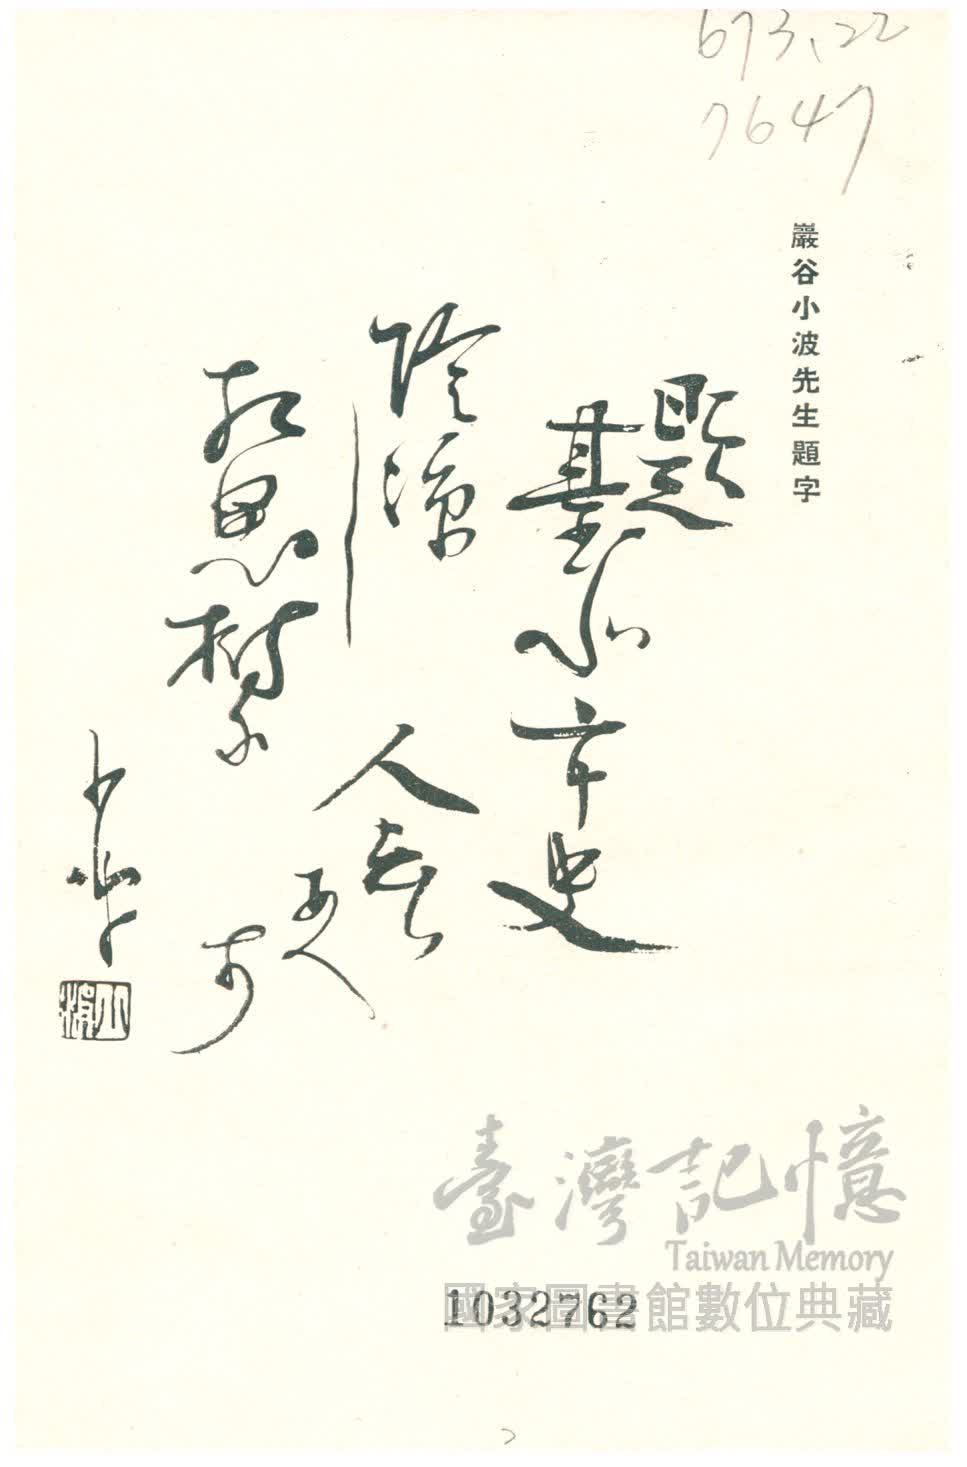 673.22
7647
巖谷小波先生題字
題
臺北市史
陰涼し
相思樹
小波
臺灣記憶
Taiwan Memory
國家圖書館數位典藏
1032762